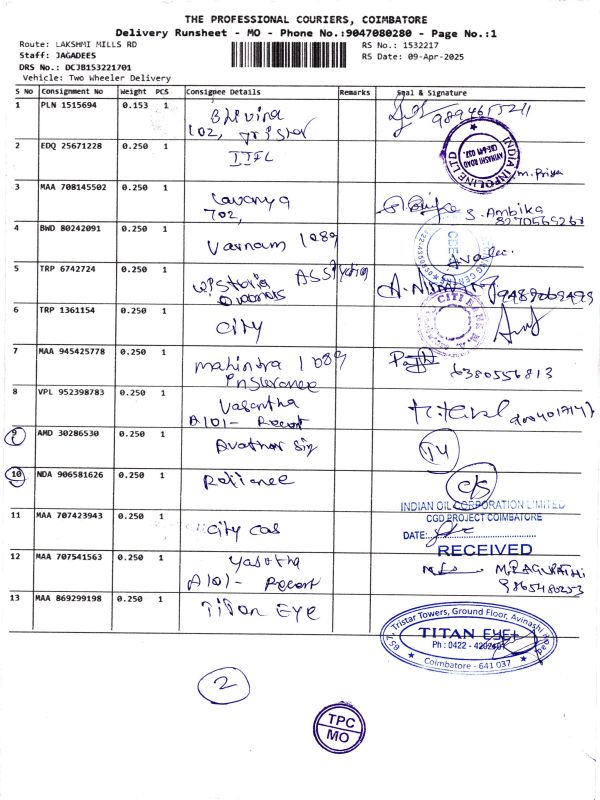 THE PROFESSIONAL COURIERS, COIMBATORE
Delivery Runsheet - MO - Phone No.:9047080280 - Page No.:1
Route: LAKSHMI MILLS RD
RS No.: 1532217
Staff: JAGADEES
RS Date: 09-Apr-2025
DRS No.: DCJB153221701
Vehicle: Two Wheeler Delivery
S No Consignment No Weight PCS Consignee Details Remarks Seal & Signature
1 PLN 1515694 0.153 1
102, Tristar
2 EDQ 25671228 0.250 1 IIFL
INDIA INFOLINE LTD
AVINASHI ROAD
CBE-641 037.
m.Priya
3 MAA 708145502 0.250 1 Lavanya
702,
S. Ambika
4 BWD 80242091 0.250 1 Varnam 1089
5 TRP 6742724 0.250 1
6 TRP 1361154 0.250 1 City
CITI BANK
7 MAA 945425778 0.250 1 mahindra 1089
Insurance
6380556813
8 VPL 952398783 0.250 1 Vasantha
A101-
9 AMD 30286530 0.250 1
10 NDA 906581626 0.250 1 Reliance
C/S
11 MAA 707423943 0.250 1 City Gas
INDIAN OIL CORPORATION LIMITED
CGD PROJECT COIMBATORE
DATE:
RECEIVED
12 MAA 707541563 0.250 1
A101-
M.RAGUPATHI
9865480253
13 MAA 869299198 0.250 1 Titan EYE
657, Tristar Towers, Ground Floor, Avinashi Road,
TITAN EYE+
Ph : 0422 -
Coimbatore - 641 037
2
TPC
MO